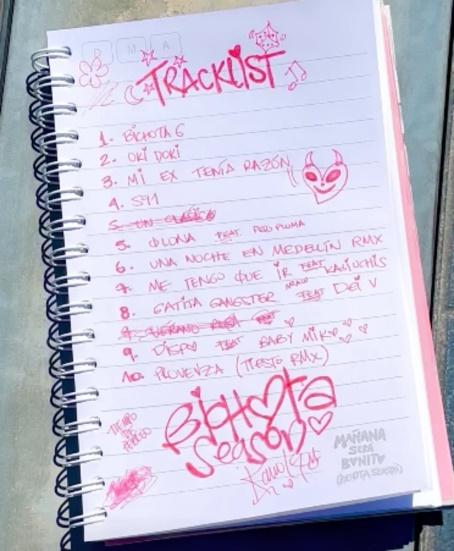 M A
TRACKLIST
1. BICHOTA G
2. OKI DOKI
3. MI EX TENÍA RAZÓN
4. S91
5. UN CLÁSICO
5. QLONA FEAT. PESO PLUMA
6. UNA NOCHE EN MEDELLÍN RMX
7. ME TENGO QUE IR FEAT KALIUCHIS
8. GATITA GANGSTER FEAT DEI V
9. VERANO FEAT
9. DISPO FEAT BABY MIKO
10. PROVENZA (TIESTO RMX)
BICHOTA
SEASON
TIEMPO
DE
PERREO
KAROL G
MAÑANA
SERÁ
BONITO
(BICHOTA SEASON)